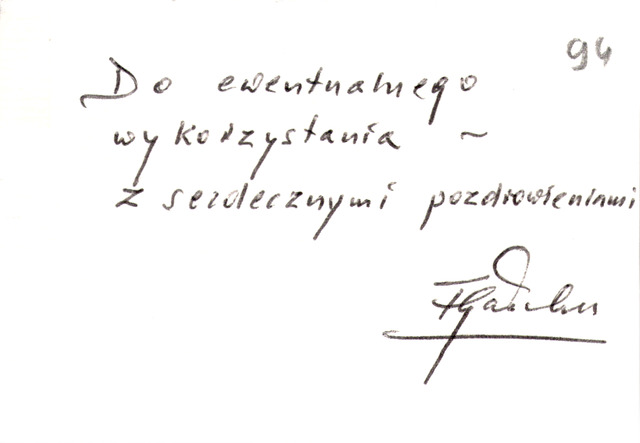 94
Do ewentualnego
wykorzystania ~
z serdecznymi pozdrowieniami